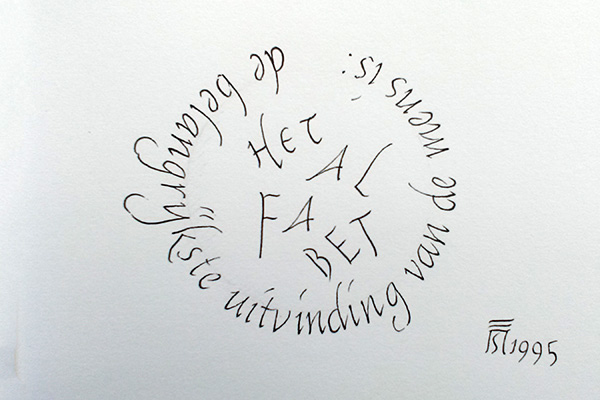 de belangrijkste uitvinding van de mens is:
HET
AL
FA
BET
1995